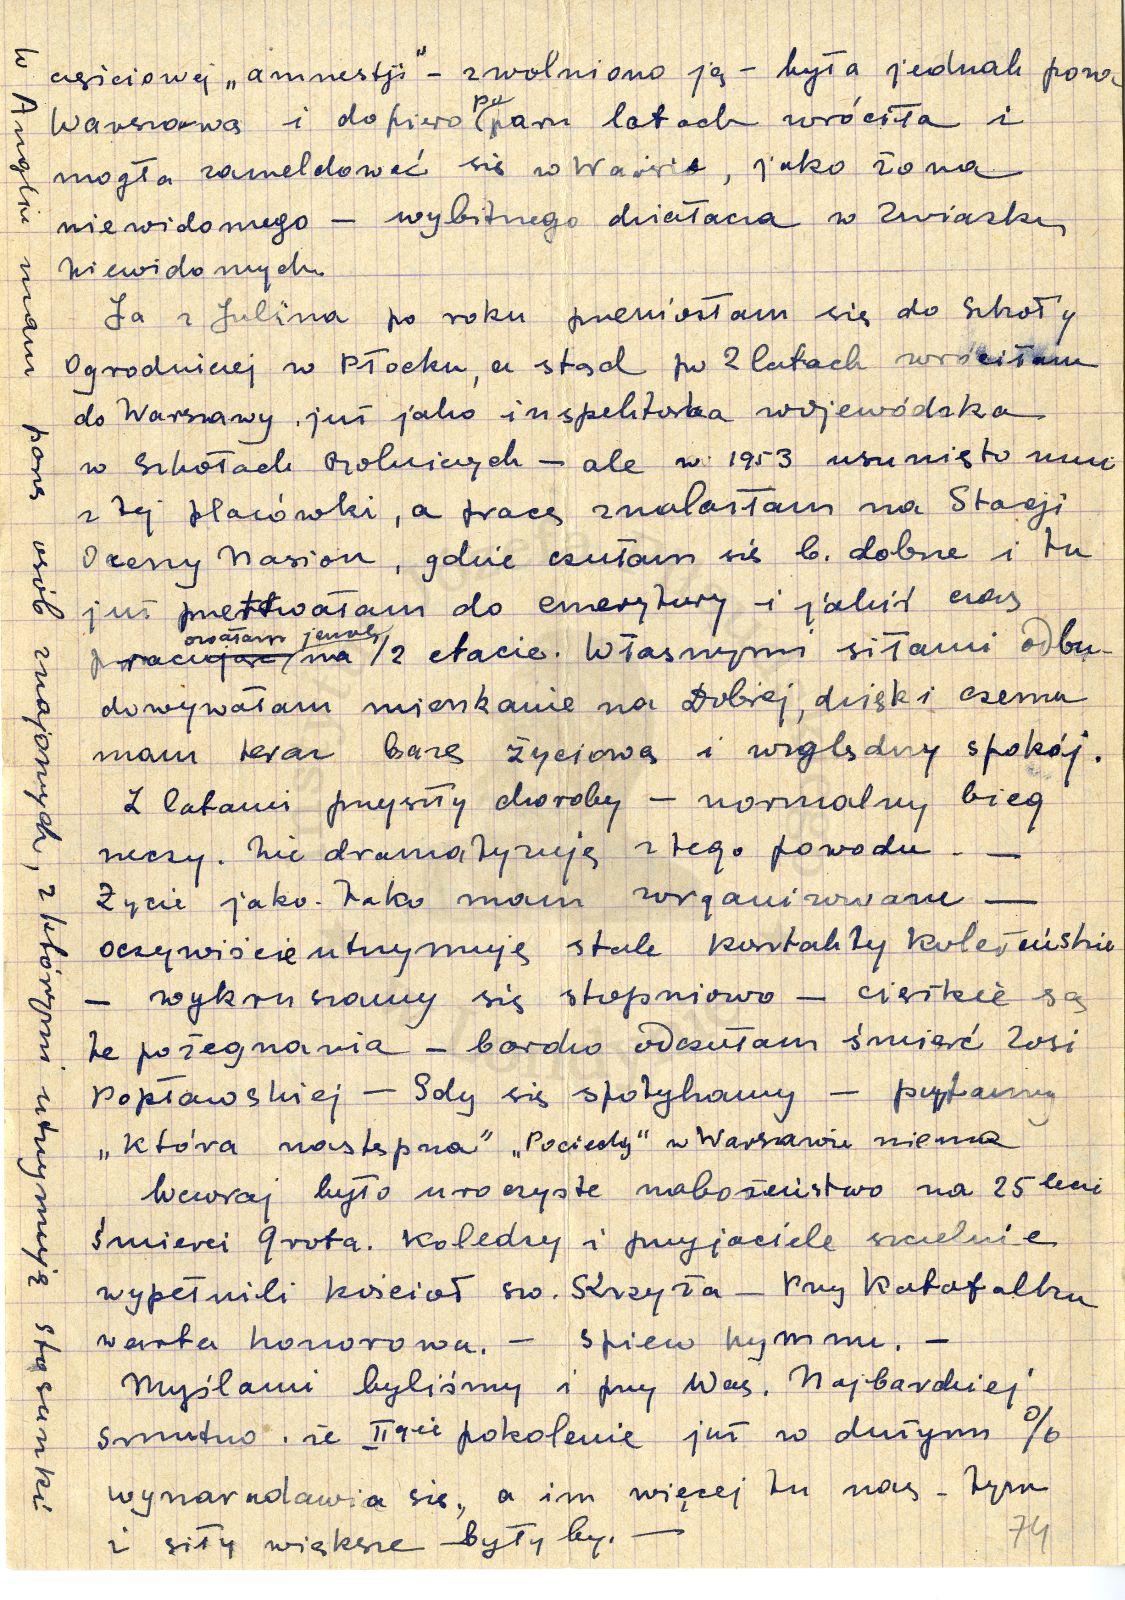 częściowej „amnestji" – zwolniono ją – była jednak poza
Warszawą i dopiero po paru latach wróciła i
mogła zameldować się w Warsie, jako żona
niewidomego – wybitnego działacza w Związku
Niewidomych.
Ja z Julina po roku przeniosłam się do Szkoły
Ogrodniczej w Płocku, a stąd po 2 latach wróciłam
do Warszawy, już jako inspektorka wojewódzka
w Szkołach Rolniczych – ale w 1953 usunięto mnie
z tej placówki, a pracę znalazłam na Stacji
Oceny Nasion, gdzie czułam się b. dobrze i tu
już przetrwałam do emerytury i jakiś czas
na 1/2 etacie. Własnymi siłami odbu-
dowywałam mieszkanie na Dobrej, dzięki czemu
mam teraz bazę życiową i względny spokój.
Z latami przyszły choroby – normalny bieg
rzeczy. Nie dramatyzuję z tego powodu. –
Życie jako-tako mam zorganizowane –
oczywiście utrzymuję stale kontakty koleżeńskie
– wykruszamy się stopniowo – ciężkie są
te pożegnania – bardzo odczułam śmierć Zosi
Popławskiej – Gdy się spotykamy – pytamy
„która następna" „Pociechy" w Warszawie niema
Wczoraj było uroczyste nabożeństwo na 25 lecie
śmierci Grota. Koledzy i przyjaciele szczelnie
wypełnili kościoł św. Krzyża – Przy Katafalku
warta honorowa. – śpiew hymnu. –
Myślami byliśmy i przy Was. Najbardziej
smutno, że II gie pokolenie już w dużym %
wynaradawia się, a im więcej tu nas – tym
i siły większe byłyby. –
74
w Anglii mam parę osób znajomych, z którymi utrzymuję stosunki